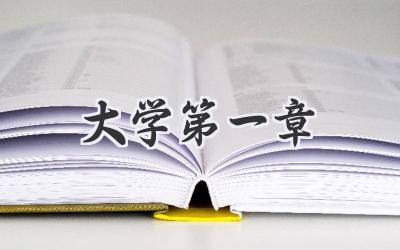 大学第一章